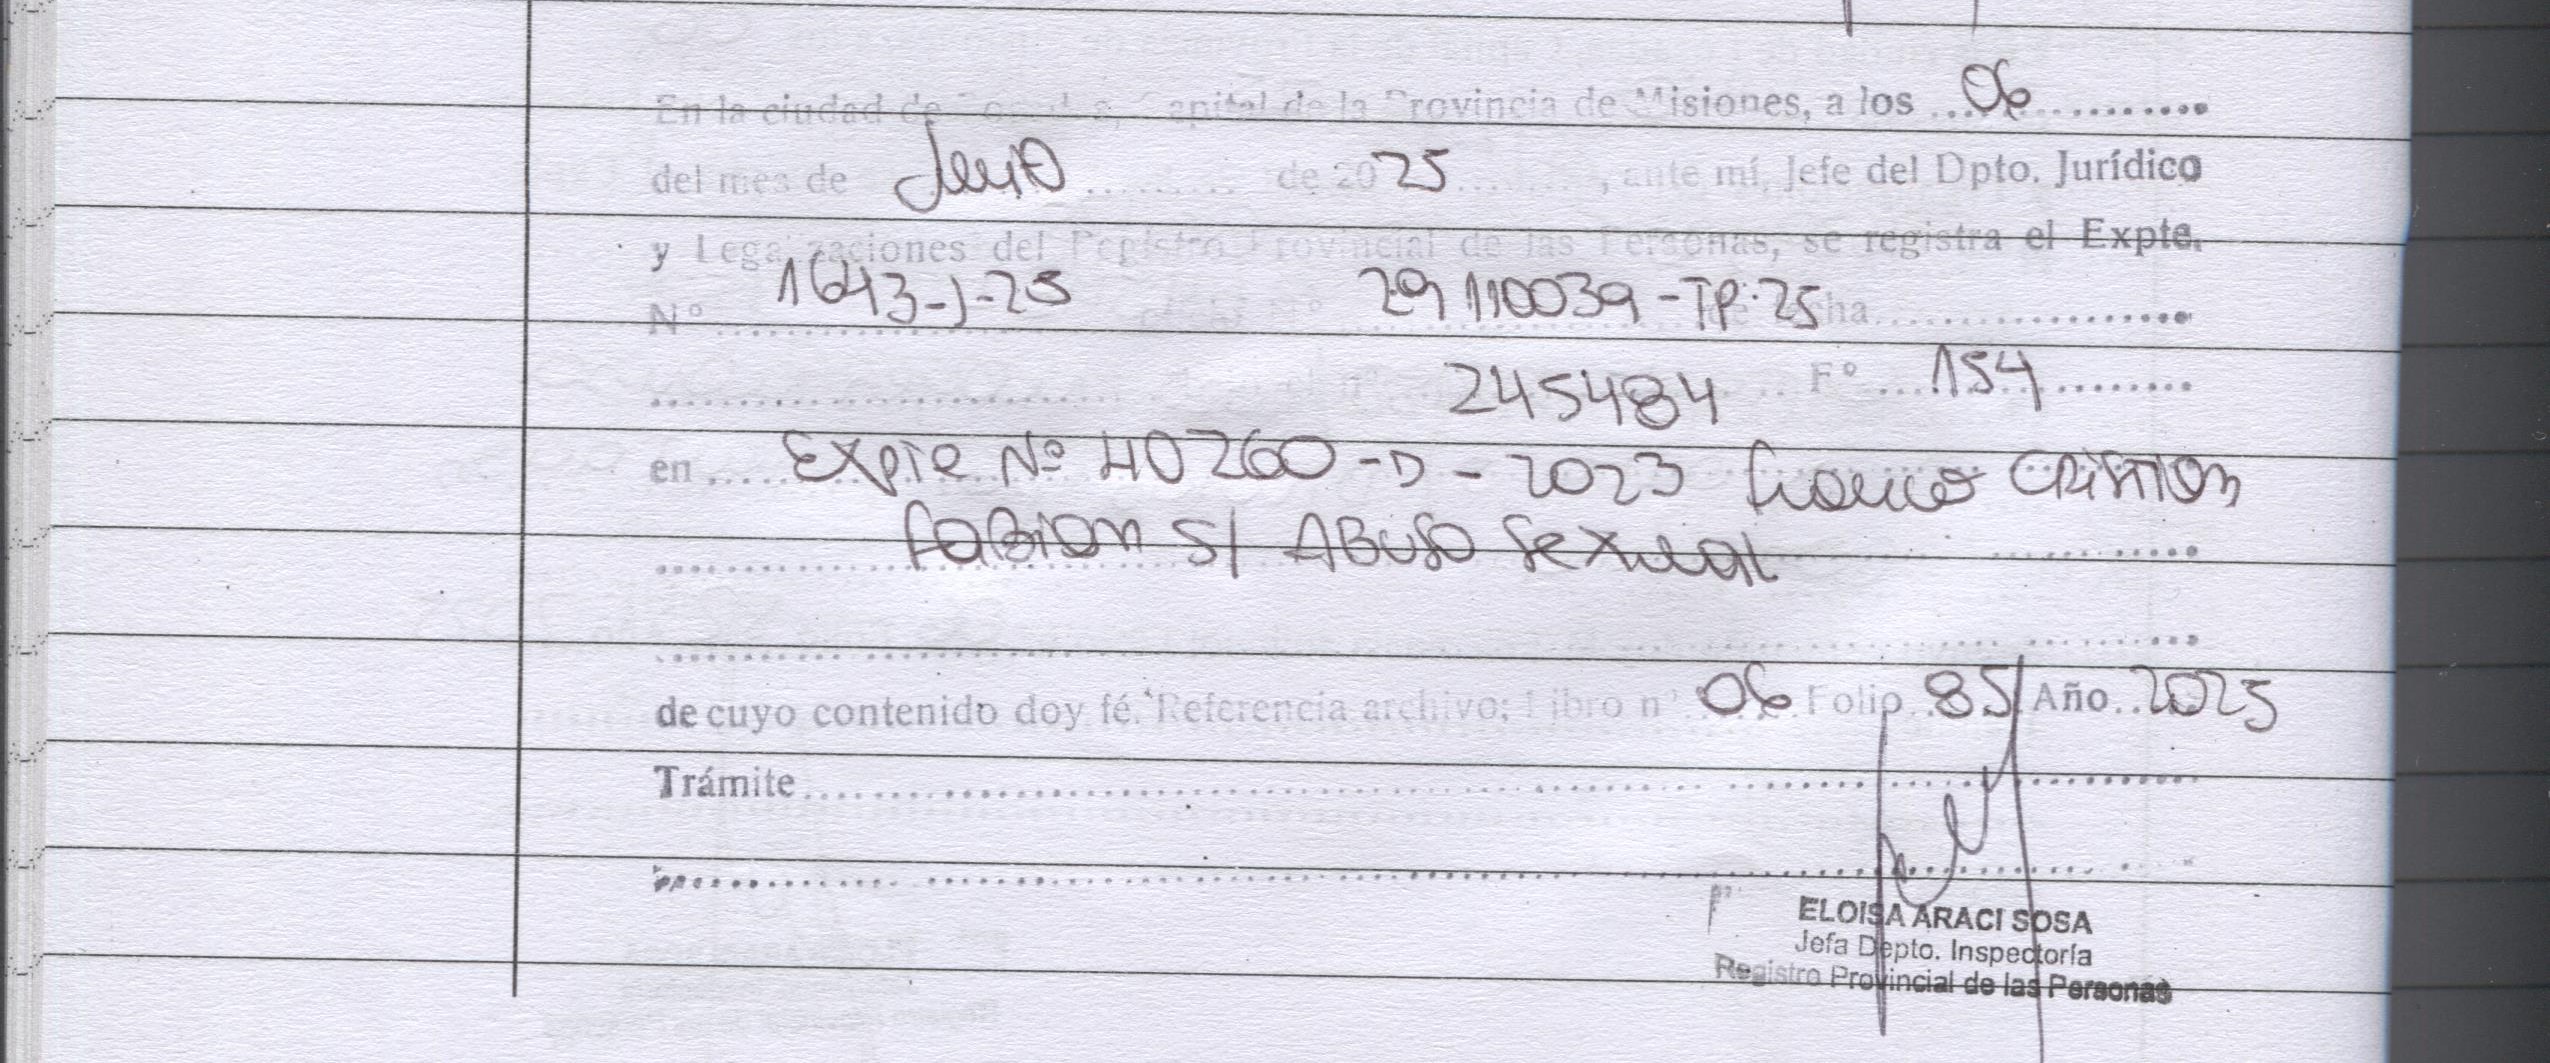 En la ciudad de Posadas, Capital de la Provincia de Misiones, a los 06
del mes de Junio de 2025, ante mí, Jefe del Dpto. Jurídico
y Legalizaciones del Registro Provincial de las Personas, se registra el Expte.
Nº 1643-J-25 29110039-TP-25 fecha
245484 Fº 154
en Expte Nº 40260-D-2023 Franco Cristian
Fabian S/ Abuso Sexual
de cuyo contenido doy fé. Referencia archivo: Libro nº 06 Folio 85 Año 2025
Trámite
ELOISA ARACI SOSA
Jefa Depto. Inspectoría
Registro Provincial de las Personas